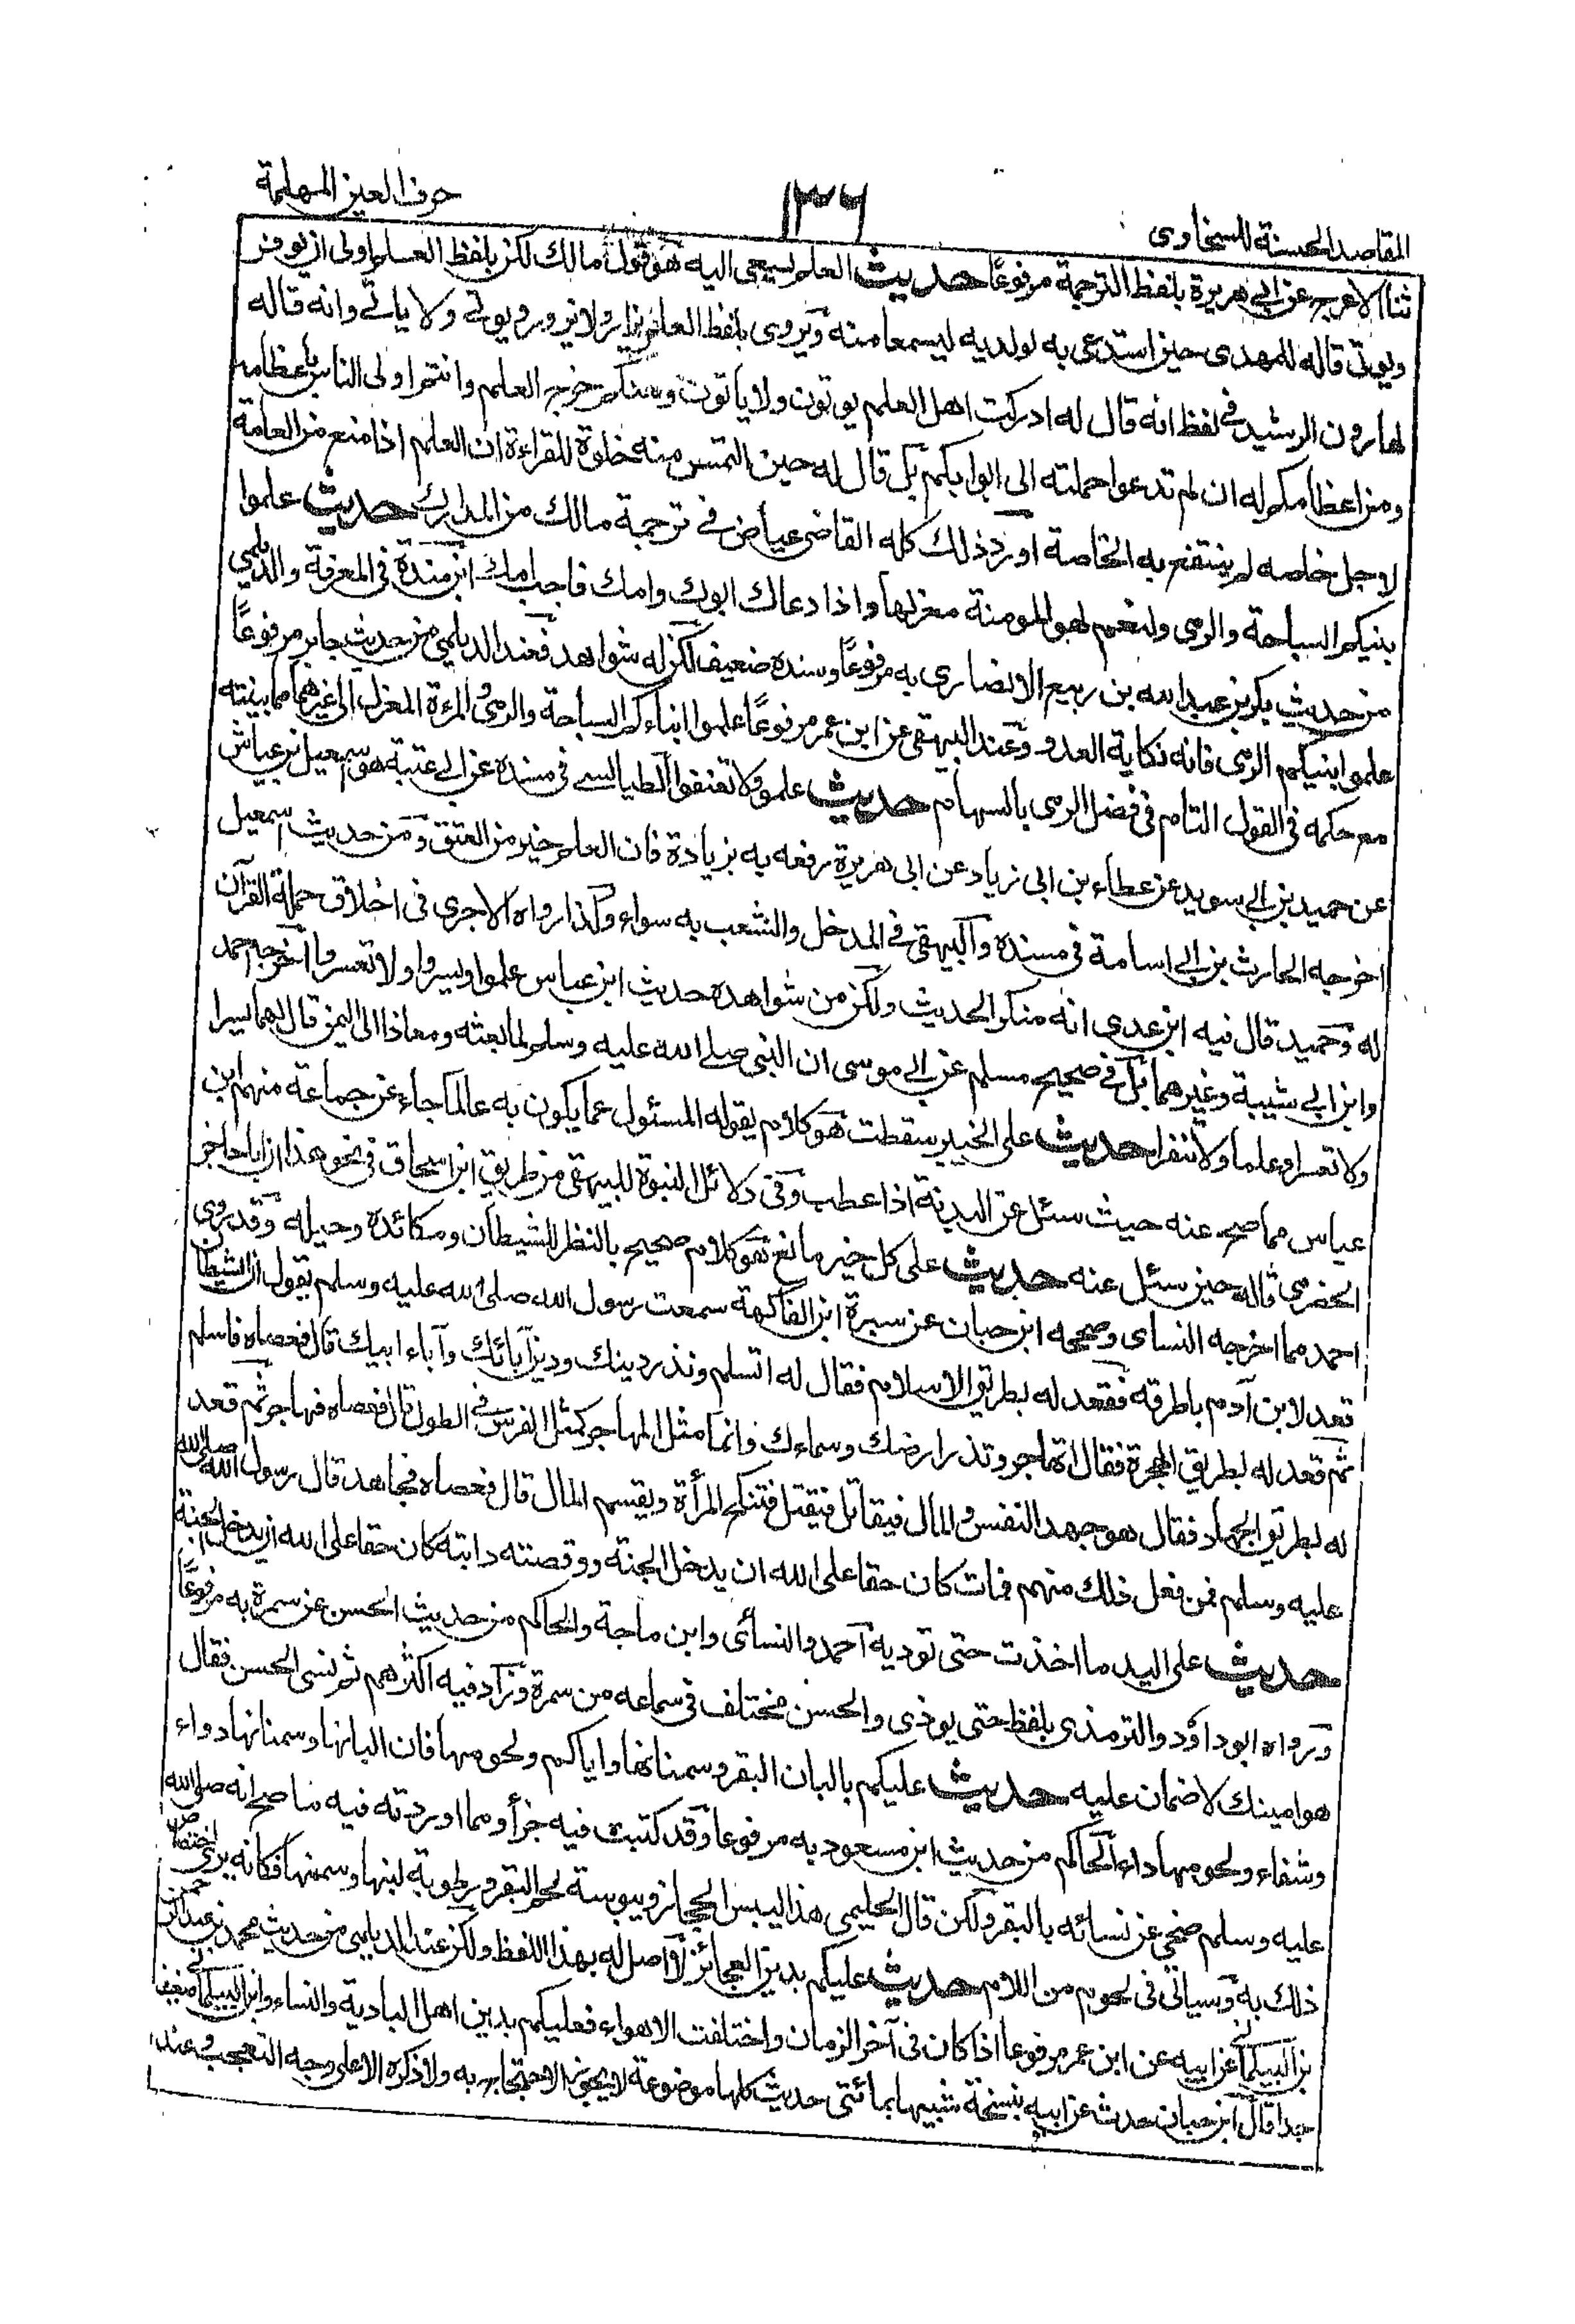 المقاصد الحسنة للسخاوى
١٣٦
حرف العين المهملة
ثنا الاعرج عن ابى هريرة بلفظ الترجمة مرفوعًا حديث العلم يسعى اليه هو قول مالك لكن بلفظ العلم اولى ان يوقر
ويوتى قاله للمهدى حين استدعى به لولديه ليسمعا منه ويروى بلفظ العلم يزار ولا يزور ويوتى ولا ياتى وانه قاله
لهارون الرشيد فى لفظ انه قال له ادركت اهل العلم يوتون ولا ياتون ومنكم خرج العلم وانتم اولى الناس باعظامه
ومن اعظامكم له ان لم تدعوا حملته الى ابوابكم بل قال له حين التمس منه خلوة للقراءة ان العلم اذا منع من العامة
لاجل خاصه لم ينتفع به الخاصة اورد ذلك كله القاضى عياض فى ترجمة مالك من المدارك حديث علموا
بنيكم السباحة والرمى ولنعم لهو المومنة مغزلها واذا دعاك ابوك وامك فاجب امك ابن مندة فى المعرفة والديلمى
من حديث بكر بن عبد الله بن ربيع الانصارى به مرفوعًا وسنده ضعيف لكن له شواهد فعند الديلمى من حديث جابر مرفوعًا
علموا ابنيكم الرمى فانه نكاية العدو وعند البيهقى عن ابن عمر مرفوعًا علموا ابناءكم السباحة والرمى والمرءة المغزل الى غيرهما مما بينته
مع حكمه فى القول التام فى فضل الرمى بالسهام حديث علموا ولا تعنفوا الطيالسى فى مسنده عن ابى عتبة هو سمعيل بن عياش
عن حميد بن ابى سويد عن عطاء بن ابى زياد عن ابى هريرة رفعه به بزيادة فان العلم خير من العتق ومن حديث اسمعيل
اخرجه الحارث بن ابى اسامة فى مسنده والبيهقى فى المدخل والشعب به سواء وكذا رواه الاجرى فى اخلاق حملة القرآن
له وحميد قال فيه ابن عدى انه منكر الحديث ولكن من شواهده حديث ابن عباس علموا ويسروا ولا تعسروا اخرجه احمد
وابن ابى شيبة وغيرهما بل فى صحيح مسلم عن ابى موسى ان النبى صلى الله عليه وسلم لما بعثه ومعاذا الى اليمن قال لهما يسرا
ولا تعسرا وعلما ولا تنفرا حديث على الخبير سقطت هو كلام يقوله المسئول عما يكون به عالما جاء عن جماعة منهم ابن
عباس مما صح عنه حيث سئل عن البدنة اذا عطب وفى دلائل النبوة للبيهقى من طريق ابن اسحاق فى نحو هذا ان ابا حاجز
الحضرمى قاله حين سئل عنه حديث على كل خير مانع هو كلام صحيح بالنظر للشيطان ومكائده وحيله وقد روى
احمد مما اخرجه النساى وصححه ابن حبان عن سبرة ابن الفاكهة سمعت رسول الله صلى الله عليه وسلم يقول ان الشيطان
قعد لابن آدم باطرقه فقعد له بطريق الاسلام فقال له اتسلم وتذر دينك ودين آبائك وآباء ابيك قال فعصاه فاسلم
ثم قعد له بطريق الهجرة فقال اتهاجر وتذر ارضك وسماءك وانما مثل المهاجر كمثل الفرس فى الطول قال فعصاه فهاجر ثم قعد
له بطريق الجهاد فقال هو جهد النفس والمال فيقاتل فيقتل فتنكح المرأة ويقسم المال قال فعصاه فجاهد قال رسول الله صلى الله
عليه وسلم فمن فعل ذلك منهم فمات كان حقا على الله ان يدخل الجنة ووقصته دابته كان حقا على الله ان يدخل الجنة
حديث على اليد ما اخذت حتى توديه احمد والنسائى وابن ماجة والحاكم من حديث الحسن عن سمرة به مرفوعًا
ورواه ابو داؤد والترمذى بلفظ حتى يوذى والحسن مختلف فى سماعه من سمرة وزاد فيه اكثرهم ثم نسى الحسن فقال
هو امينك لا ضمان عليه حديث عليكم بالبان البقر وسمنانها واياكم ولحومها فان البانها وسمنانها دواء
وشفاء ولحومها داء الحاكم من حديث ابن مسعود به مرفوعا وقد كتبت فيه جزأ ومما اوردته فيه ما صح انه صلى الله
عليه وسلم ضحى عن نسائه بالبقر ولكن قال الحليمى هذا ليبس الحجاز ويبوسة لحم البقر ورطوبة لبنها وسمنها فكانه يرى اختصاص
ذلك به وسياتى فى لحوم من اللام حديث عليكم بدين العجائز لا اصل له بهذا اللفظ ولكن عند الديلمى من حديث محمد بن عبد الرحمن
بن البيلمانى عن ابيه عن ابن عمر مرفوعا اذا كان فى آخر الزمان واختلفت الاهواء فعليكم بدين اهل البادية والنساء وابن البيلمانى ضعيف
جدا قال ابن حبان حدث عن ابيه بنسخة شبيها بمائتى حديث كلها موضوعة لا يجوز الاحتجاج به ولا ذكره الا على وجه التعجب وعند